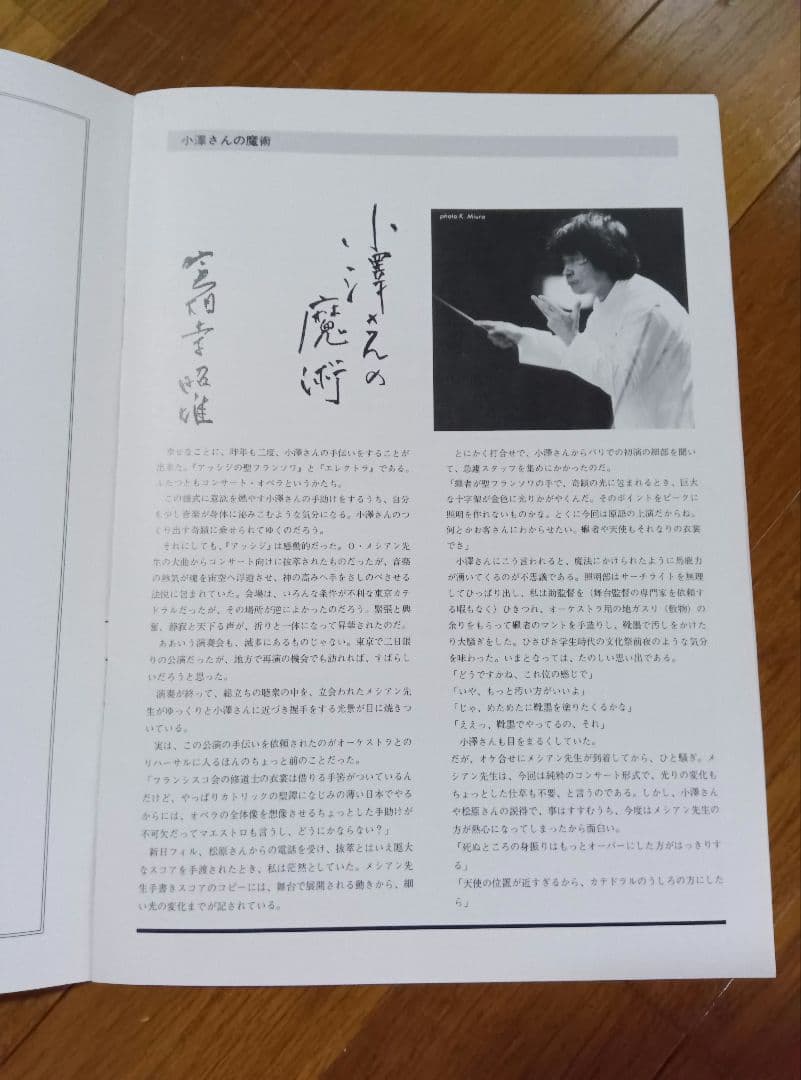 小澤さんの魔術
小澤さんの
魔術
宮伯幸昭雄
photo K. Miura
幸せなことに、昨年も二度、小澤さんの手伝いをすることが
出来た。『アッシジの聖フランソワ』と『エレクトラ』である。
ふたつともコンサート・オペラというかたち。
この様式に意欲を燃やす小澤さんの手助けをするうち、自分
も少し音楽が身体に沁みこむような気分になる。小澤さんのつ
くり出す奇蹟に乗せられてゆくのだろう。
それにしても、『アッシジ』は感動的だった。O・メシアン先
生の大曲からコンサート向けに抜萃されたものだったが、音楽
の熱気が魂を宙空へ浮遊させ、神の高みへ手をさしのべさせる
法悦に包まれていた。会場は、いろんな条件が不利な東京カテ
ドラルだったが、その場所が逆によかったのだろう。緊張と興
奮、静寂と天下る声が、祈りと一体になって昇華されたのだ。
ああいう演奏会も、滅多にあるものじゃない。東京で二日限
りの公演だったが、地方で再演の機会でも訪れれば、すばらし
いだろうと思った。
演奏が終って、総立ちの聴衆の中を、立会われたメシアン先
生がゆっくりと小澤さんに近づき握手をする光景が目に焼きつ
いている。
実は、この公演の手伝いを依頼されたのがオーケストラとの
リハーサルに入るほんのちょっと前のことだった。
「フランシスコ会の修道士の衣裳は借りる手筈がついているん
だけど、やっぱりカトリックの聖譚になじみの薄い日本でやる
からには、オペラの全体像を想像させるちょっとした手助けが
不可欠だってマエストロも言うし、どうにかならない？」
新日フィル、松原さんからの電話を受け、抜萃とはいえ厖大
なスコアを手渡されたとき、私は茫然としていた。メシアン先
生手書きスコアのコピーには、舞台で展開される動きから、細
い光の変化までが記されている。
とにかく打合せで、小澤さんからパリでの初演の細部を聞い
て、急遽スタッフを集めにかかったのだ。
「癩者が聖フランソワの手で、奇蹟の光に包まれるとき、巨大
な十字架が金色に光りかがやくんだ。そのポイントをピークに
照明を作れないものかな。とくに今回は原語の上演だからね。
何とかお客さんにわからせたい。癩者や天使もそれなりの衣裳
でさ」
小澤さんにこう言われると、魔法にかけられたように馬鹿力
が湧いてくるのが不思議である。照明部はサーチライトを無理
してひっぱり出し、私は助監督を（舞台監督の専門家を依頼す
る暇もなく）ひきつれ、オーケストラ用の地ガスリ（敷物）の
余りをもらって癩者のマントを手造りし、靴墨で汚しをかけた
り大騒ぎをした。ひさびさ学生時代の文化祭前夜のような気分
を味わった。いまとなっては、たのしい思い出である。
「どうですかね、これ位の感じで」
「いや、もっと汚い方がいいよ」
「じゃ、めためたに靴墨を塗りたくるかな」
「ええっ、靴墨でやってるの、それ」
小澤さんも目をまるくしていた。
だが、オケ合せにメシアン先生が到着してから、ひと騒ぎ。メ
シアン先生は、今回は純粋のコンサート形式で、光りの変化も
ちょっとした仕草も不要、と言うのである。しかし、小澤さん
や松原さんの説得で、事はすすむうち、今度はメシアン先生の
方が熱心になってしまったから面白い。
「死ぬところの身振りはもっとオーバーにした方がはっきりす
る」
「天使の位置が近すぎるから、カテドラルのうしろの方にした
ら」